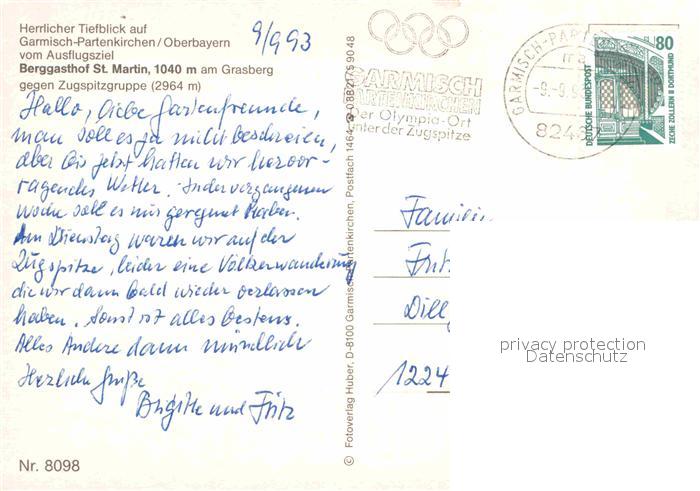 Herrlicher Tiefblick auf
Garmisch-Partenkirchen/Oberbayern
vom Ausflugsziel
Berggasthof St. Martin, 1040 m am Grasberg
gegen Zugspitzgruppe (2964 m)
9/9 93
Hallo, liebe Gartenfreunde,
man soll es ja nicht beschreien,
aber bis jetzt hatten wir hervor-
ragendes Wetter. In der vergangenen
Woche soll es nur geregnet haben.
Am Dienstag waren wir auf der
Zugspitze, leider eine Völkerwanderung
die wir dann bald wieder verlassen
haben. Sonst ist alles bestens.
Alles Andere dann mündlich
Herzliche Grüße
Brigitte und Fritz
Nr. 8098
© Fotoverlag Huber, D-8100 Garmisch-Partenkirchen, Postfach 1464
GARMISCH
PARTENKIRCHEN
der Olympia-Ort
unter der Zugspitze
GARMISCH-PARTE
82467
80
DEUTSCHE BUNDESPOST
ZECHE ZOLLERN II DORTMUND
Familie
Fritz
Dill
1224
privacy protection
Datenschutz